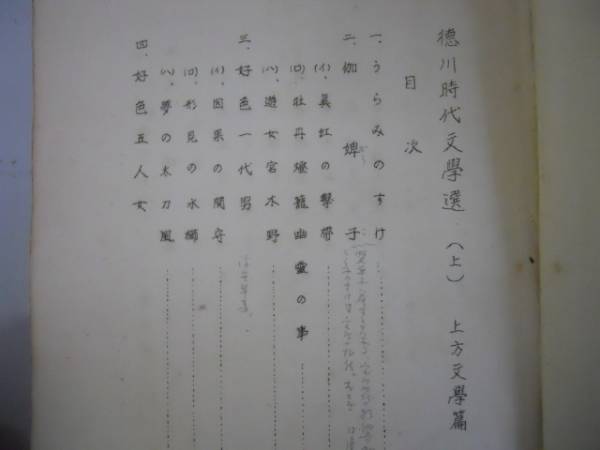 德川時代文學選(上) 上方文學篇
目次
一、うらみのすけ
二、伽婢子
(イ)眞紅の擊帶
(ロ)牡丹燈籠幽靈の事
(ハ)遊女宮木野
三、好色一代男
(イ)因果の関守
(ロ)形見の水櫛
(ハ)夢の太刀風
四、好色五人女